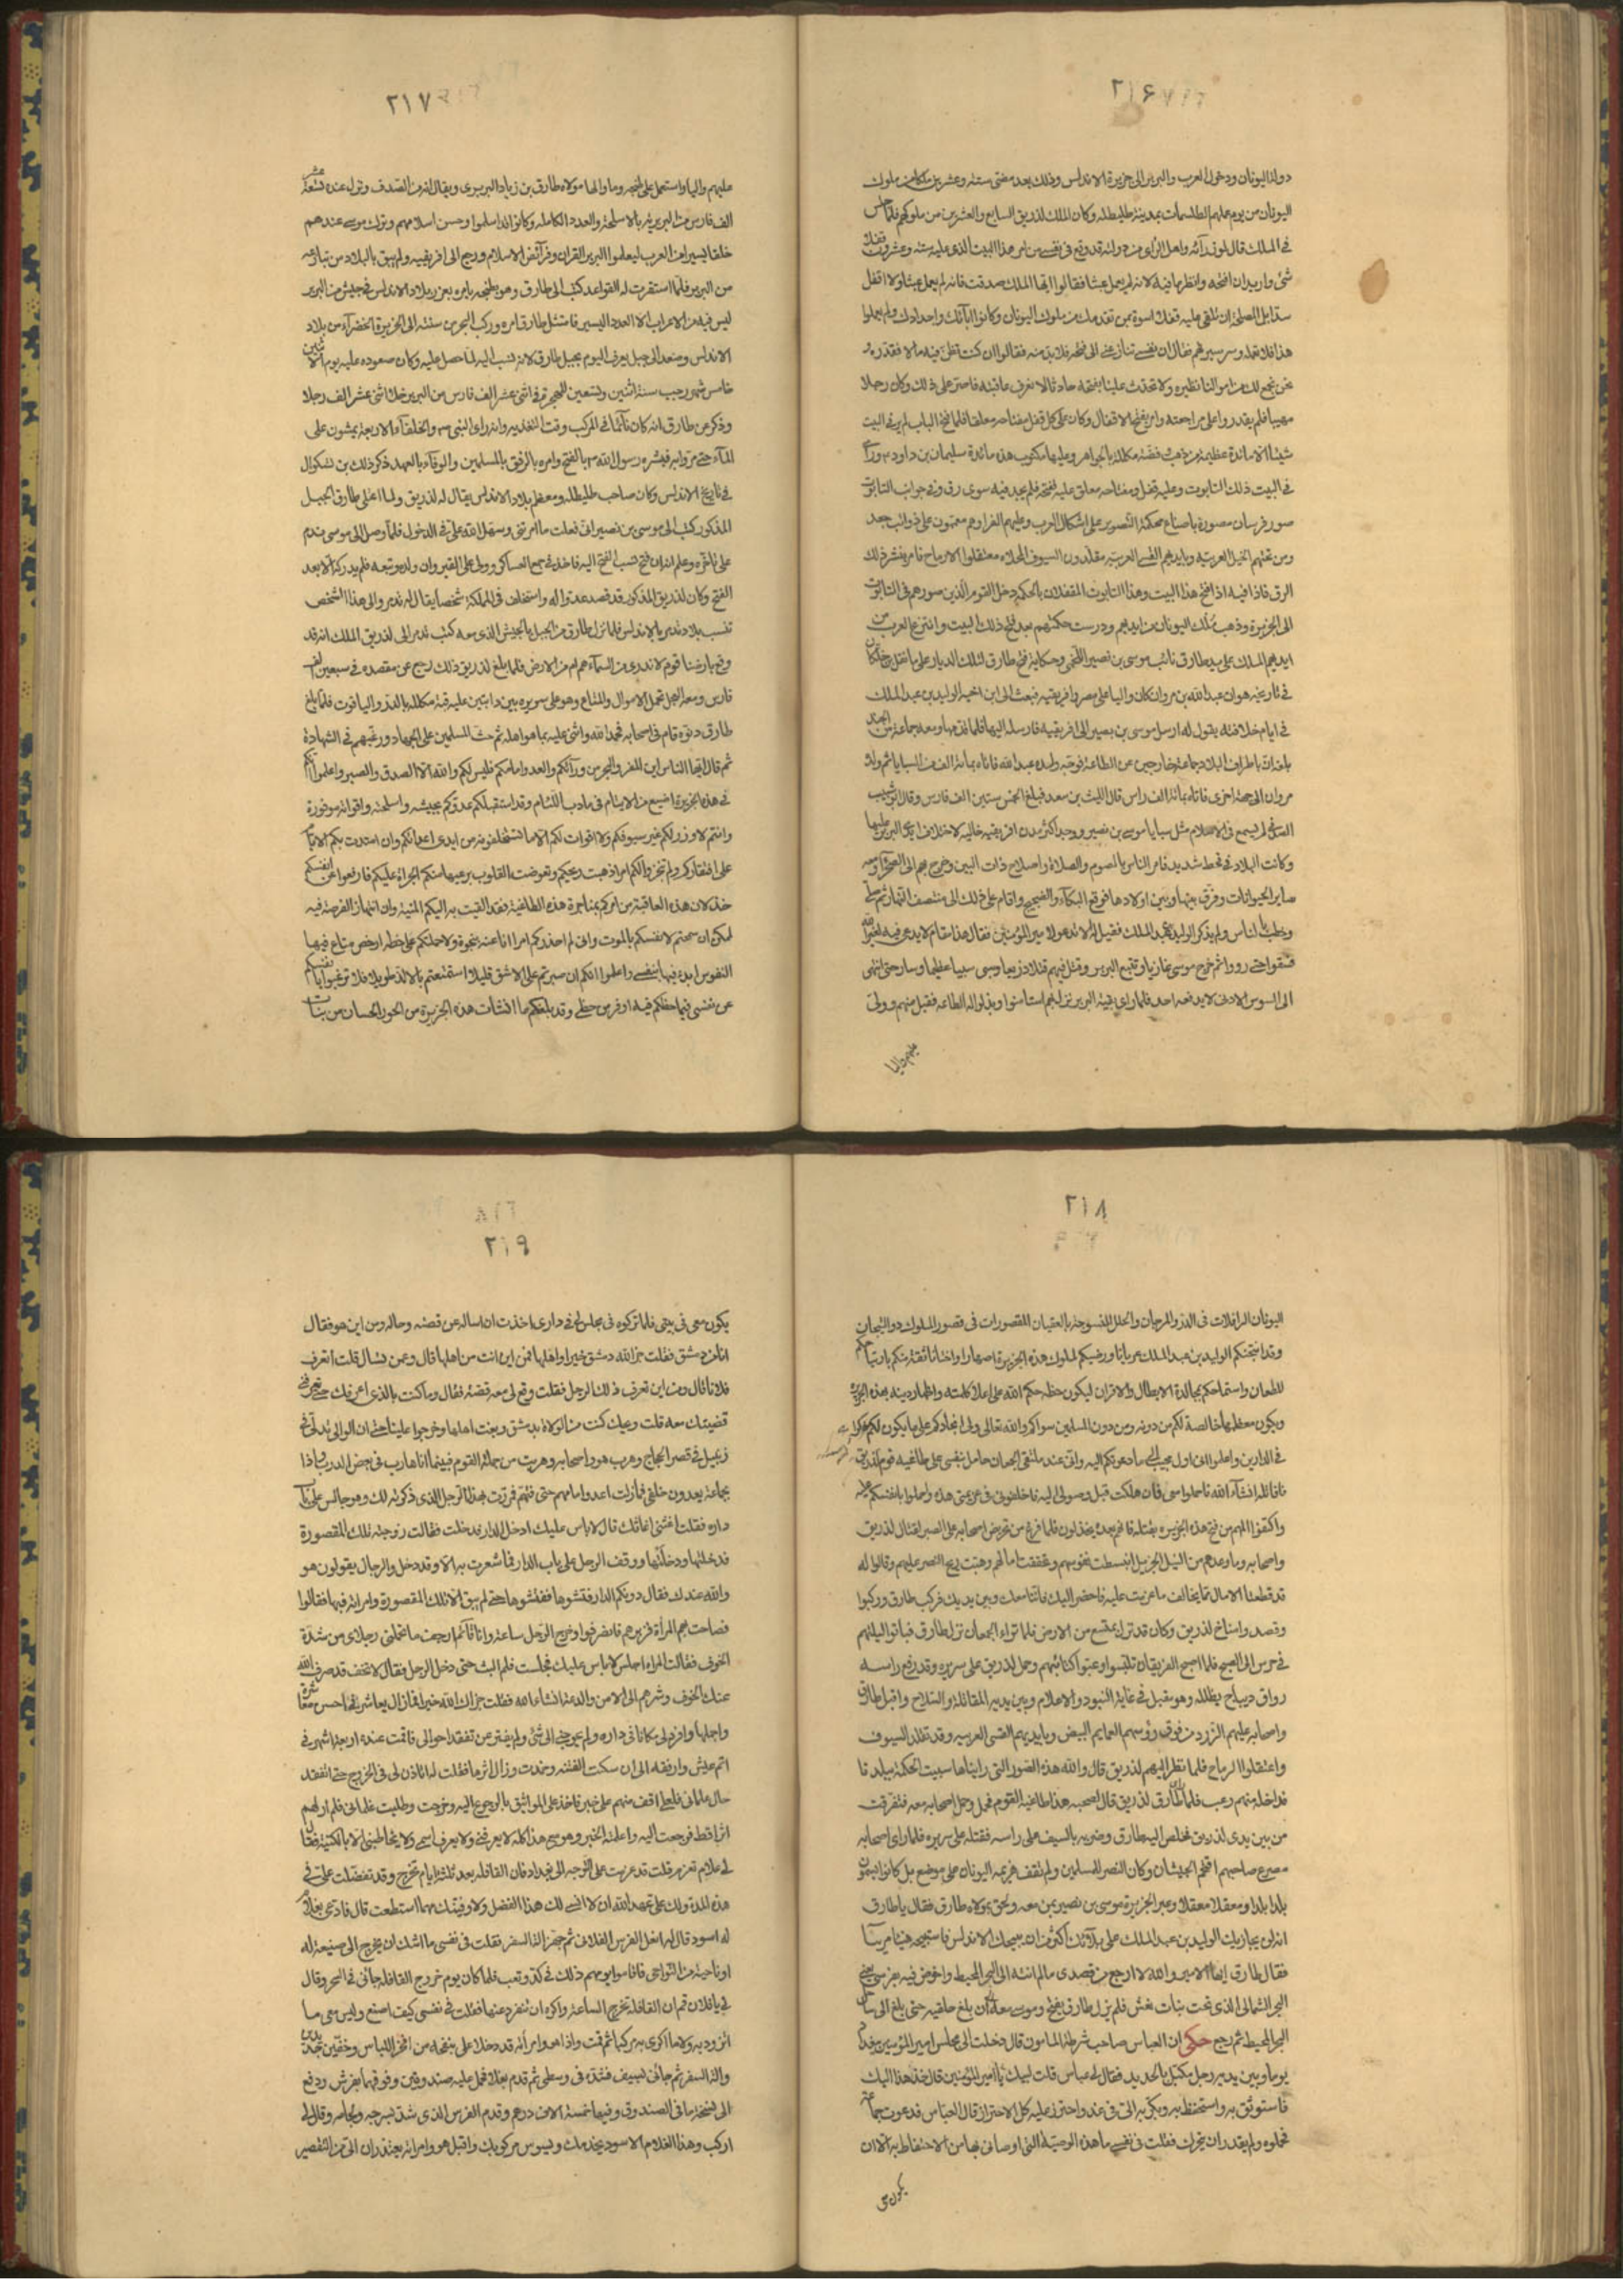 ٢١۶
دولة اليونان ودخول العرب والبربر الى جزيرة الاندلس وذلك بعد مضى ستة وعشرين ملكا من ملوك
اليونان من يوم عملهم الطلسمات بمدينة طليطله وكان الملك لذريق السابع والعشرين من ملوكهم فلما جلس
في الملك قال لوزرائه واهل الراى من دولته قد وقع في نفسى من امر هذا البيت الذى عليه ستة وعشرون قفلا
شئ واريد ان افتحه وانظر ما فيه لانه لم يعمل عبثا فقالوا ايها الملك صدقت فانه لم يعمل عبثا ولا اقفل
سدا بل المصلحة ان تلقى عليه قفلا اسوة بمن تقدمك من ملوك اليونان وكانوا اباءك واجدادك ولم يهملوا
هذا فلا تهمله وسر سيرهم فقال ان نفسى تنازعنى الى فتحه فلا بد منه فقالوا ان كنت تظن فيه مالا فقدره و
نحن نجمع لك من اموالنا نظيره ولا تحدث علينا بفتحه حادثا لا نعرف عاقبته فاصر على ذلك وكان رجلا
مهيبا فلم يقدروا على مراجعته وامر بفتح الاقفال وكان على كل قفل مفتاحه معلقا فلما فتح الباب لم ير في البيت
شيئا الا مائدة عظيمة من ذهب وفضة مكللة بالجواهر وعليها مكتوب هذه مائدة سليمان بن داود م وراى
في البيت ذلك التابوت وعليه قفل ومفتاحه معلق عليه ففتحه فلم يجد فيه سوى رق وفي جوانب التابوت
صور فرسان مصورة باصباغ محكمة التصوير على اشكال العرب وعليهم الفرا وهم معممون على ذوائب جعد
ومن تحتهم الخيل العربية وبايديهم القسى العربية مقلدون السيوف المحلاه معتقلوا الارماح فامر بنشر ذلك
الرق فاذا فيه اذا فتح هذا البيت وهذا التابوت المقفلان بالحكمة دخل القوم الذين صورهم في التابوت
الى الجزيرة وذهب ملك اليونان من ايديهم ودرست حكمتهم بعد فتح ذلك البيت وانتزع العرب من
ايديهم الملك على يد طارق نائب موسى بن نصير اللخمى وحكاية فتح طارق لتلك الديار على ما نقل بن خلكان
في تاريخه هو ان عبد الله بن مروان كان واليا على مصر وافريقيه فبعث الى ابن اخيه الوليد بن عبد الملك
في ايام خلافته يقول له ارسل موسى بن نصير الى افريقيه فارسله اليها فلما قدمها ومعه جماعة من الجند
بلغه ان باطراف البلاد جماعة خارجين عن الطاعة فوجه ولده عبد الله فاتاه بمائة الف من السبايا ثم ولده
مروان الى جهة اخرى فاتاه بمائة الف راس قال الليث بن سعد فبلغ الخمس ستين الف فارس وقال ابو شبيب
الصدفى لم يسمع في الاسلام مثل سبايا موسى بن نصير ووجد اكثر مدن افريقيه خاليه لاختلاف ايدى البربر عليها
وكانت البلاد في قحط شديد فامر الناس بالصوم والصلاة واصلاح ذات البين وخرج بهم الى الصحرا ومعه
ساير الحيوانات وفرق بينها وبين اولادها فوقع البكاء والضجيج واقام على ذلك الى منتصف النهار ثم صلى
وخطب بالناس ولم يذكر الوليد بن عبد الملك فقيل له الا تدعو لامير المؤمنين فقال هذا مقام لا يدعى فيه لغير الله
فسقوا حتى رووا ثم خرج موسى غازيا وتتبع البربر وقتل فيهم قتلا ذريعا وسبى سبيا عظيما وسار حتى انتهى
الى السوس الادنى لا يدفعه احد فلما راى بقية البربر نزل بهم استامنوا وبذلوا له الطاعه فقبل منهم وولى
عليهم واليا
٢١٧
عليهم واليا واستعمل على طنجه وما والاها مولاه طارق بن زياد البربرى ويقال انه من الصدف وترك عنده تسعة عشر
الف فارس من البربر بالاسلحة والعدد الكامله وكانوا قد اسلموا وحسن اسلامهم وترك موسى عندهم
خلقا يسيرا من العرب ليعلموا البربر القران وفرائض الاسلام ورجع الى افريقيه ولم يبق بالبلاد من ينازعه
من البربر فلما استقرت له القواعد كتب الى طارق وهو بطنجه يامره بغزو بلاد الاندلس في جيش من البربر
ليس فيه من الاعراب الا العدد اليسير فامتثل طارق امره وركب البحر من سبتة الى الجزيرة الخضراء من بلاد
الاندلس وصعد الى جبل يعرف اليوم بجبل طارق لانه نسب اليه لما حصل عليه وكان صعوده عليه يوم الاثنين
خامس شهر رجب سنة اثنين وتسعين للهجرة في اثنى عشر الف فارس من البربر خلا اثنى عشر الف رجلا
وذكر عن طارق انه كان نائما في المركب وقت التعدية وانه راى النبى ص والخلفاء الاربعة يمشون على
الماء حتى مروا به فبشره رسول الله ص بالفتح وامره بالرفق بالمسلمين والوفاء بالعهد ذكر ذلك بن بشكوال
في تاريخ الاندلس وكان صاحب طليطله ومعظم بلاد الاندلس يقال له لذريق ولما اعلى طارق الجبل
المذكور كتب الى موسى بن نصير انى فعلت ما امرتنى وسهل الله على في الدخول فلما وصل الى موسى ندم
على تاخره وعلم انه ان فتح نسب الفتح اليه فاخذ في جمع العساكر وولى على القيروان ولده وتبعه فلم يدركه الا بعد
الفتح وكان لذريق المذكور قد قصد عدوا له واستخلف في المملكة شخصا يقال له تدمر والى هذا الشخص
تنسب بلاد تدمر بالاندلس فلما نزل طارق من الجبل بالجيش الذى معه كتب تدمر الى لذريق الملك انه قد
وقع بارضنا قوم لا ندرى من السماء هم ام من الارض فلما بلغ لذريق ذلك رجع عن مقصده في سبعين الف
فارس ومعه العجل تحمل الاموال والمتاع وهو على سريره بين دابتين عليه قبة مكللة بالدر والياقوت فلما بلغ
طارق دنوه قام في اصحابه فحمد الله واثنى عليه بما هو اهله ثم حث المسلمين على الجهاد ورغبهم في الشهادة
ثم قال ايها الناس اين المفر والبحر من ورائكم والعدو امامكم فليس لكم والله الا الصدق والصبر واعلموا انكم
في هذه الجزيرة اضيع من الايتام في مادب اللئام وقد استقبلكم عدوكم بجيشه واسلحته واقواته موفورة
وانتم لا وزر لكم غير سيوفكم ولا اقوات لكم الا ما تستخلصونه من ايدى اعدائكم وان امتدت بكم الايام
على افتقاركم ولم تنجزوا لكم امرا ذهبت ريحكم وتعوضت القلوب برعبها منكم الجراة عليكم فادفعوا عن انفسكم
خذلان هذه العاقبة من امركم بمناجزة هذه الطاغية فقد القت به اليكم المنية وان انتهاز الفرصة فيه
لممكن ان سمحتم لانفسكم بالموت وانى لم احذركم امرا انا عنه بنجوة ولا حملتكم على خطه ارخص متاع فيها
النفوس ابدء فيها بنفسى واعلموا انكم ان صبرتم على الاشق قليلا استمتعتم بالالذ طويلا فلا ترغبوا بانفسكم
عن نفسى فما حظكم فيه اوفر من حظى وقد بلغكم ما انشات هذه الجزيرة من الحور الحسان من بنات
٢١٨
اليونان الرافلات في الدر والمرجان والحلل المنسوجة بالعقيان المقصورات في قصور الملوك ذوى التيجان
وقد انتخبكم الوليد بن عبد الملك عربانا ورضيكم لملوك هذه الجزيرة اصهارا واختانا ثقة منكم بارتياحكم
للطعان واستماحكم بمجالدة الابطال والاقران ليكون حظه حكم الله على اعلاء كلمته واظهار دينه بهذه الجزيرة
ويكون معظمها خالصة لكم من دونه ومن دون المسلمين سواكم والله تعالى ولى انجادكم على ما يكون لكم ذكرا
في الدارين واعلموا انى اول مجيب الى ما دعوتكم اليه وانى عند ملتقى الجمعان حامل بنفسى على طاغية قومه لذريق
فانا قاتله انشاء الله فاحملوا معى فان هلكت قبل وصولى اليه فاخلفونى في عزيمتى هذه واحملوا بانفسكم عليه
واكتفوا الهم من فتح هذه الجزيره بقتله فانهم بعده يخذلون فلما فرغ من تحريض اصحابه على الصبر لقتال لذريق
واصحابه وما وعدهم من النيل الجزيل انبسطت نفوسهم وتحققت امالهم وهبت ريح النصر عليهم وقالوا له
قد قطعنا الامال مما يخالف ما عزمت عليه فاحضر اليك فاننا معك وبين يديك فركب طارق وركبوا
وقصد وا مناخ لذريق وكان قد نزل بمتسع من الارض فلما تراء الجمعان نزل طارق فباتوا ليلتهم
في حرس الى الصبح فلما اصبح الفريقان تلببوا وعبوا كتائبهم وحمل لذريق على سريره وقد رفع راسه
رواق ديباج يظلله وهو مقبل في غاية البنود والاعلام وبين يديه المقاتلة والسلاح واقبل طارق
واصحابه عليهم الزرد من فوق رؤسهم العمايم البيض وبايديهم القسى العربيه وقد تقلدوا السيوف
واعتقلوا الرماح فلما نظر اليهم لذريق قال والله هذه الصور التى رايناها ببيت الحكمة ببلدنا
فداخله منهم رعب فلما راى طارق لذريق قال لصحبه هذا طاغية القوم فحمل وحمل اصحابه معه فتفرقت
من بين يدى لذريق فخلص اليه طارق وضربه بالسيف على راسه فقتله على سريره فلما راى اصحابه
مصرع صاحبهم اقتحم الجيشان وكان النصر للمسلمين ولم تقف هزيمة اليونان على موضع بل كانوا يسلمون
بلدا بلدا ومعقلا معقلا وعبر الجزيرة موسى بن نصير بمن معه ولحق بمولاه طارق فقال يا طارق
انه لن يجازيك الوليد بن عبد الملك على بلائك اكثر من ان يبيحك الاندلس فاستبحه هنيئا مريئا
فقال طارق ايها الامير والله لا ارجع من قصدى ما لم انته الى البحر المحيط واخوض فيه بفرسى يعنى
البحر الشمالى الذى تحت بنات نعش فلم يزل طارق يفتح وموسى معه الى ان بلغ جليقيه حتى بلغ الى ساحل
البحر المحيط ثم رجع حكى ان العباس صاحب شرطة المامون قال دخلت الى مجلس امير المؤمنين ببغداد
يوما وبين يديه رجل مكبل بالحديد فقال لى عباس قلت لبيك يا امير المؤمنين قال خذ هذا اليك
فاستوثق به واستحفظ به وبكر به الى في غد واحترز عليه كل الاحتراز قال العباس فدعوت جماعة
فحملوه ولم يقدر ان يتحرك فقلت في نفسى ما هذه الوصية التى اوصانى بها من الاحتفاظ به الا ان
يكون معى
٢١٩
يكون معى في بيتى فلما تركوه في مجلس لى في دارى اخذت ان اساله عن قصته وحاله ومن اين هو فقال
انا من دمشق فقلت جزا الله دمشق خيرا واهلها فمن اين انت من اهلها قال وعمن تسال قلت اتعرف
فلانا قال ومن اين تعرف ذلك الرجل فقلت وقع لى معه قضية فقال وما كنت بالذى اعرفك حتى تعرفنى
قضيتك معه قلت ويحك كنت مع الولاة بدمشق وبغت اهلها وخرجوا علينا حتى ان الوالى تدلى في
زنبيل في قصر الحجاج وهرب هو واصحابه وهربت من جملة القوم فبينما انا هارب في بعض الدرب واذا
بجماعة يعدون خلفى فما زلت اعدو امامهم حتى فتهم فمررت بهذا الرجل الذى ذكرته لك وهو جالس على باب
داره فقلت اغثنى اغاثك الله قال لا باس عليك ادخل الدار فدخلت فقالت زوجته تلك المقصورة
فدخلتها ودخلتها ووقف الرجل على باب الدار فما شعرت به الا وقد دخل والرجال يقولون هو
والله عندك فقال دونكم الدار فتشوها ففتشوها حتى لم يبق الا تلك المقصورة وامراته فيها فقالوا
فصاحت بهم المراة فزبرهم فانصرفوا وخرج الرجل ساعة وانا قائم ارجف ما تحملنى رجلاى من شدة
الخوف فقالت المراه اجلس لا باس عليك فجلست فلم البث حتى دخل الرجل فقال لا تخف قد صرف الله
عنك الخوف وشرهم الى الامن والدعة انشاء الله فقلت جزاك الله خيرا فما زال يعاشرنى احسن معاشرة
واجملها وافرد لى مكانا في داره ولم يحوجنى الى شئ ولم يفتر عن تفقد احوالى فاقمت عنده اربعة اشهر في
اتم عيش وارفقه الى ان سكنت الفتنة وخمدت وزال اثرها فقلت له اتاذن لى في الخروج حتى اتفقد
حال غلمانى فلعلى اقف منهم على خبر فاخذ على المواثيق بالرجوع اليه وخرجت وطلبت غلمانى فلم ار لهم
اثرا قط فرجعت اليه واعلمته الخبر وهو مع هذا كله لا يعرفنى ولا يعرف اسمى ولا يخاطبنى الا بالكنية فقال
لى علام تعزم قلت قد عزمت على التوجه الى بغداد فان القافله بعد ثلثة ايام تخرج وقد تفضلت على في
هذه المدة ولك على عهد الله ان لا انسى لك هذا الفضل ولاوفينك مهما استطعت قال فادعى بغلام
له اسود قال له انعل الفرس الفلانى ثم جهز الة السفر فقلت في نفسى ما اشك ان يخرج الى ضيعة له
او ناحية من النواحى فاقاموا يومهم ذلك في كد وتعب فلما كان يوم خروج القافله جائنى في السحر وقال
لى يا فلان قم ان القافلة تخرج الساعة واكره ان تنفرد عنها فقلت في نفسى كيف اصنع وليس معى ما
اتزود به ولا ما اكرى به مركبا ثم قمت واذا هو وامراته قد دخلا على بقبجة من افخر اللباس وخفين جديدين
والة السفر ثم جائنى بسيف فشده في وسطى ثم قدم بغلا فحمل عليه صندوقين وفوقهما مفرش ودفع
الى نسخة ما في الصندوق وفيها خمسة الاف درهم وقدم الفرس الذى شد بسرجه ولجامه وقال لى
اركب وهذا الغلام الاسود يخدمك ويسوس مركوبك واقبل هو وامراته يعتذران الى من التقصير